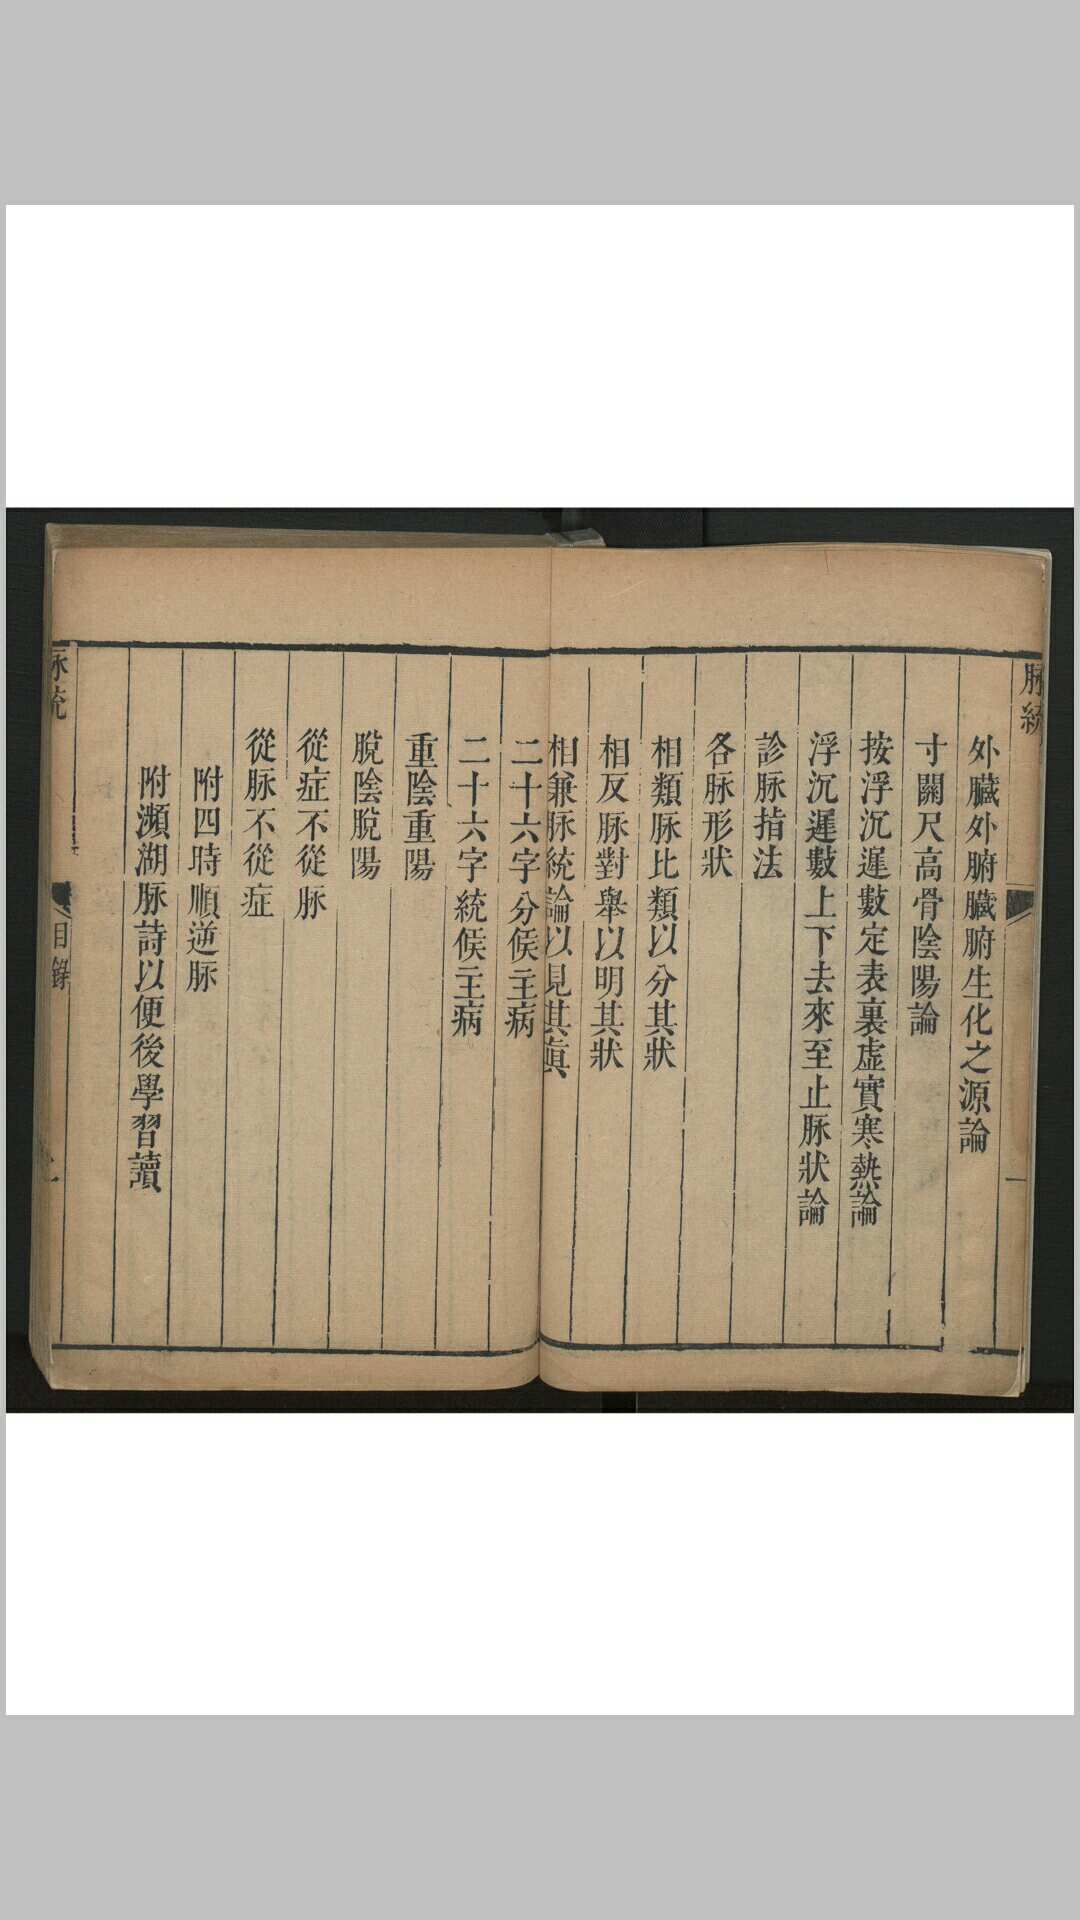 脉統
一
外臟外腑臟腑生化之源論
寸關尺高骨陰陽論
按浮沉遲數定表裏虛實寒熱論
浮沉遲數上下去來至止脉狀論
診脉指法
各脉形狀
相類脉比類以分其狀
相反脉對舉以明其狀
相兼脉統論以見其眞
二十六字分候主病
二十六字統候主病
重陰重陽
脫陰脫陽
從症不從脉
從脉不從症
附四時順逆脉
附瀕湖脉詩以便後學習讀
脉統
目錄